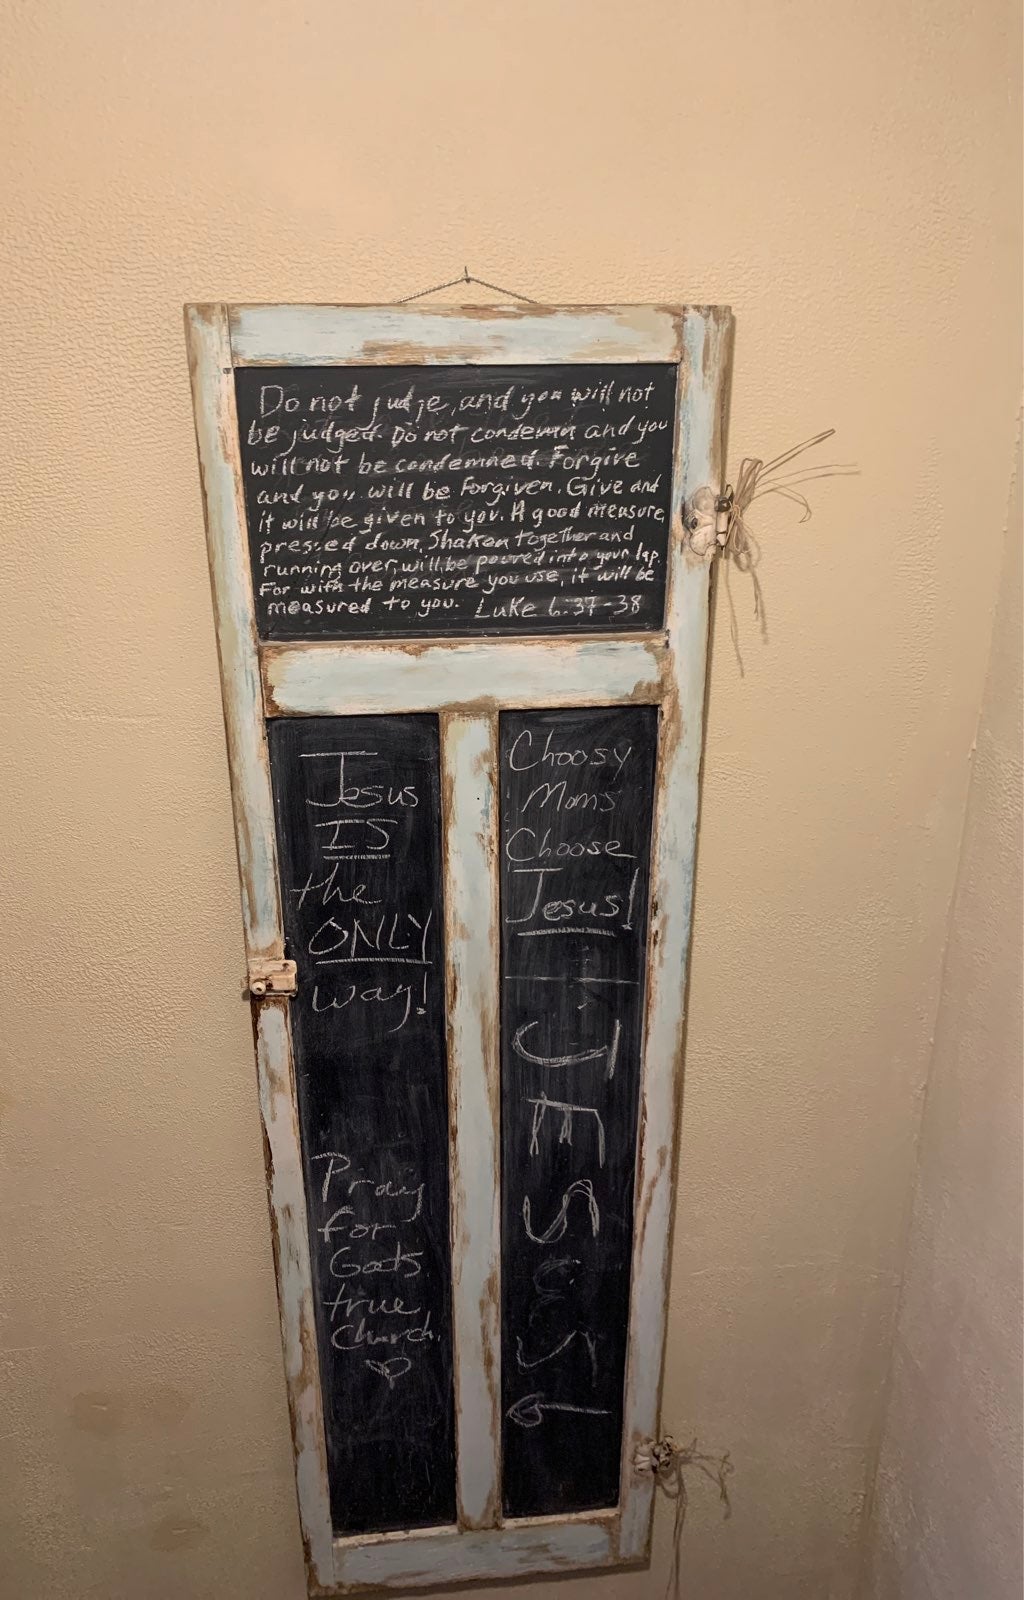 Do not judge, and you will not
be judged. Do not condemn and you
will not be condemned. Forgive
and you will be forgiven. Give and
it will be given to you. A good measure,
pressed down, Shaken together and
running over, will be poured into your lap.
For with the measure you use, it will be
measured to you. Luke 6:37-38
Jesus
IS
the
ONLY
way!
Pray
for
God's
true
Church.
Choosy
Moms
Choose
Jesus!
JESUS